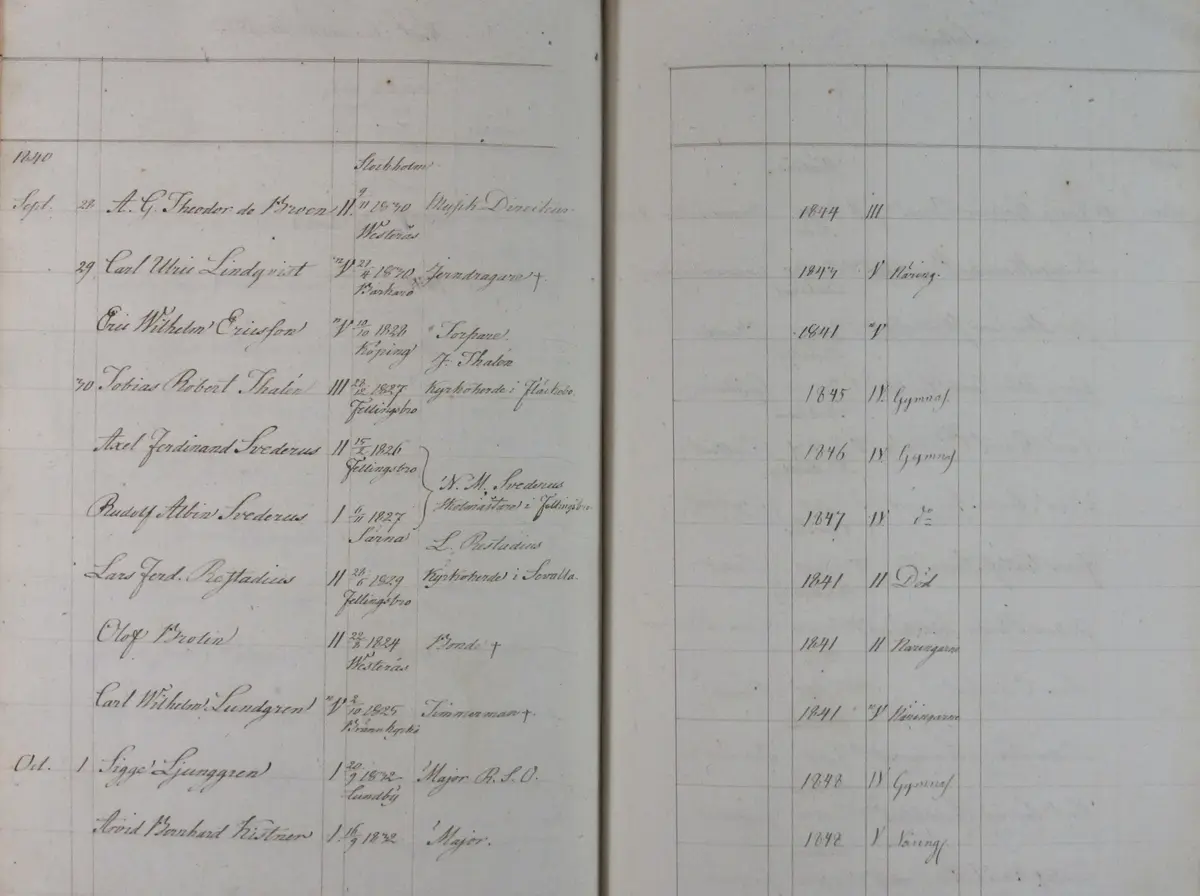 1840
Stockholm
Sept. 28 A. G. Theodor de Broen II. 9/11 1830 Musik Directeur 1844 III
Westerås
29 Carl Ulric Lindqvist "V 21/4 1830 Jerndragare † 1843 V Näring
Barkarö
Eric Wilhelm Ericsson "V 10/10 1828 Torpare 1841 "V
Köping J. Thalén
30 Tobias Robert Thalén III 28/12 1827 Kyrkoherde i 1845 IV. Gymnas.
Fellingsbro
Axel Ferdinand Svederus II 15/2 1826 1846 IV Gymnas.
Fellingsbro N. M. Svederus
Skolmästare i Fellingsbro
Rudolf Albin Svederus I 6/11 1827 1847 IV do
Särna L. Restadius
Lars Ferd. Restadius II 28/6 1829 Kyrkoherde i Sevalla. 1841 II Död
Fellingsbro
Olof Brolin II 22/8 1824 Bonde † 1841 II Näringarne
Westerås
Carl Wilhelm Lundgren "V 2/10 1825 Timmerman †. 1841 "V Näringarne
Brännkyrka
Oct. 1 Sigge Ljunggren I 20/9 1832 Major R. S. O. 1848 IV Gymnas.
Lundby
Arvid Bernhard Kistner I. 16/9 1832 Major. 1848 V Näring